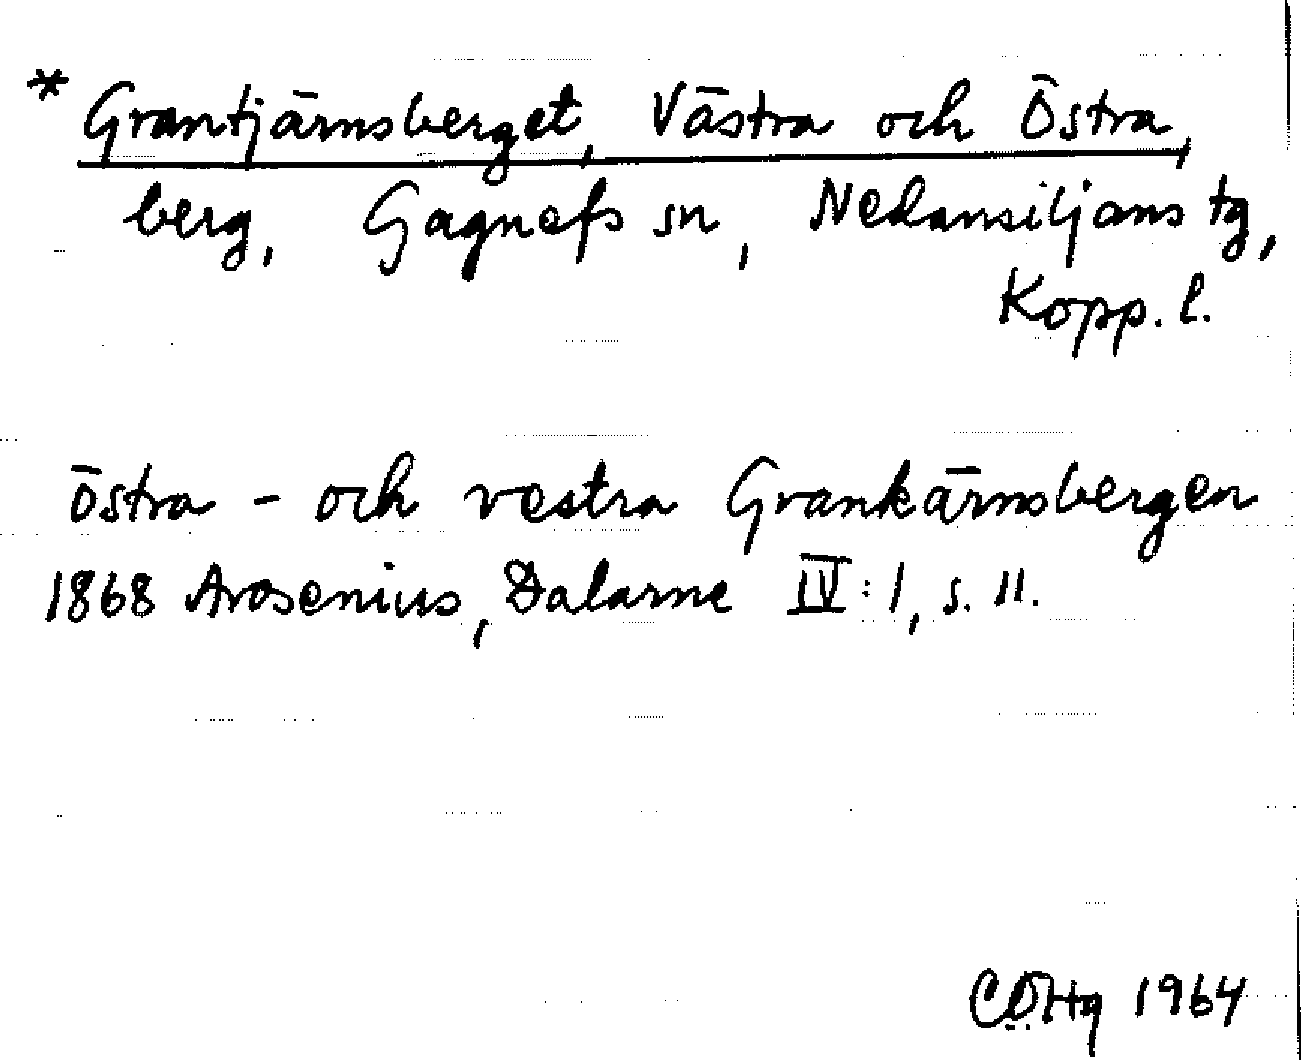 * Grantjärnsberget, Västra och Östra,
berg, Gagnefs sn, Nedansiljans tg,
Kopp. l.
östra - och vestra Grankärnsbergen
1868 Arosenius, Dalarne IV:1, s. 11.
CÖHg 1964